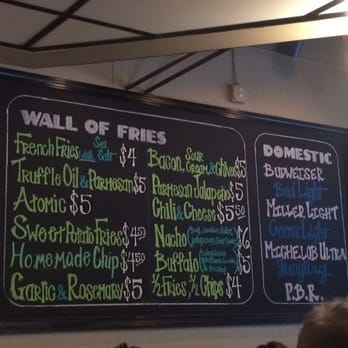 WALL OF FRIES
French Fries with Sea Salt $4
Truffle Oil & Parmesan $5
Atomic $5
Sweet Potato Fries $4.50
Homemade Chip $4.50
Garlic & Rosemary $5
Bacon, Sour Cream & Chives $5
Parmesan Jalapeños $5
Chili & Cheese $5.50
Nacho $6
Buffalo $5
1/2 Fries 1/2 Chips $4
DOMESTIC
BUDWEISER
Bud Light
MILLER LIGHT
Coors Light
MICHELOB ULTRA
Yuengling
P.B.R.